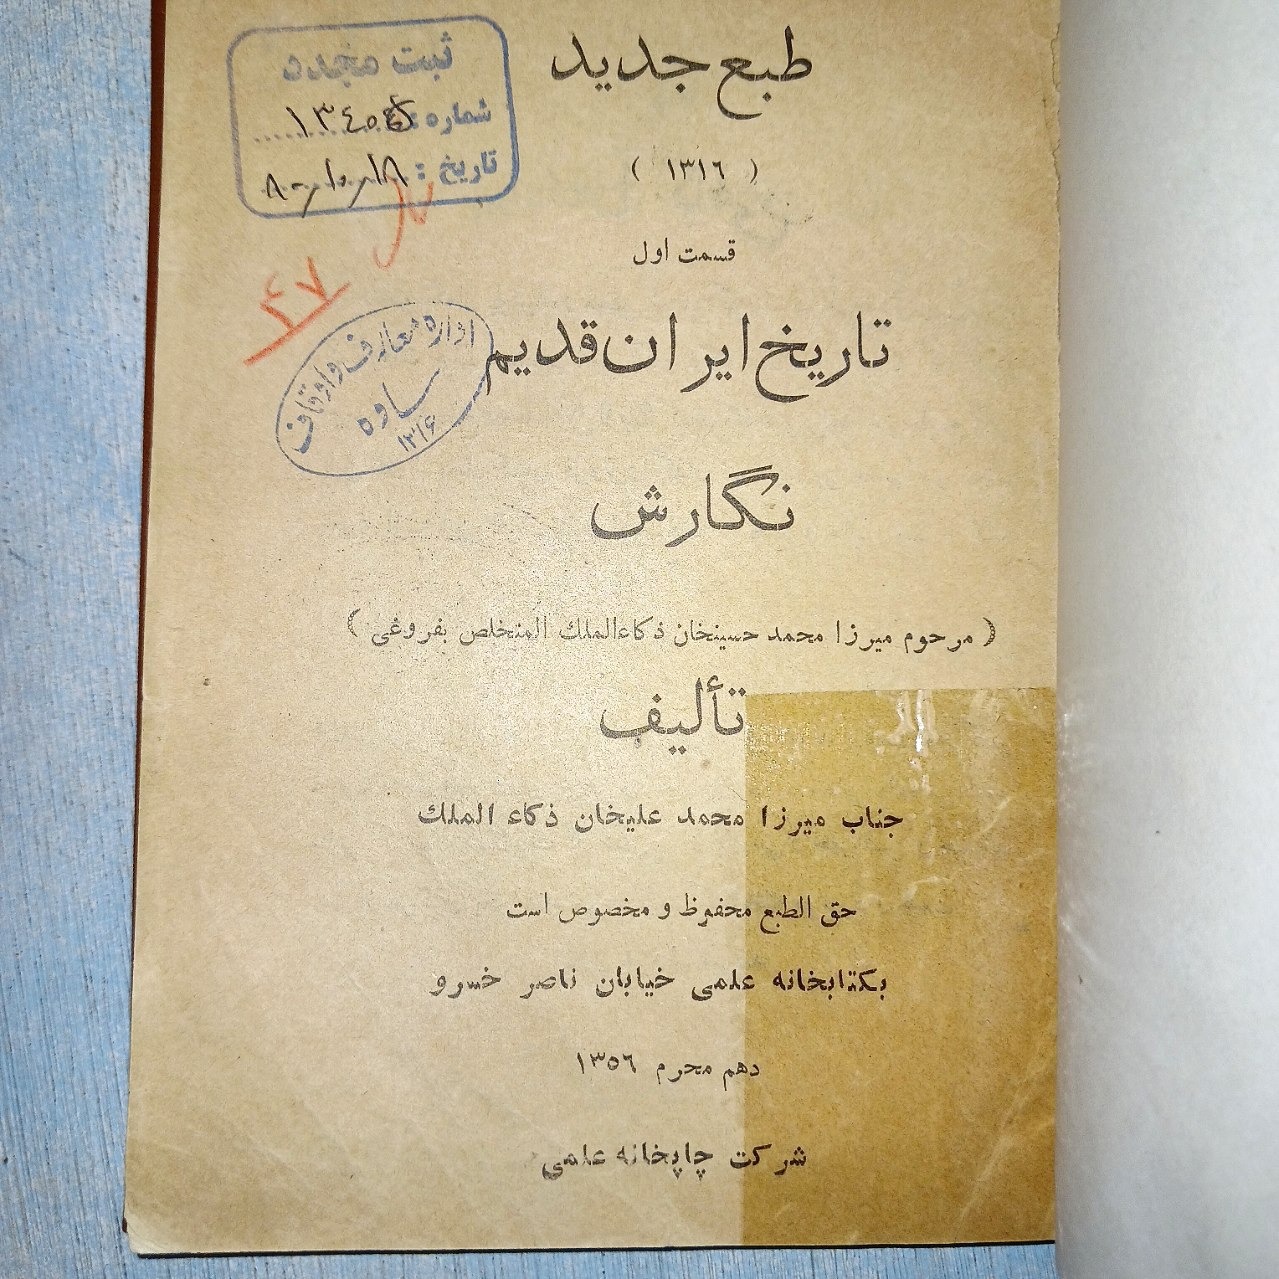 ثبت مجدد
شماره
تاریخ :
طبع جدید
( ١٣١٦ )
قسمت اول
۴۷
تاریخ ایران قدیم
اداره معارف و اوقاف
ساوه
۱۳۱۶
نگارش
( مرحوم میرزا محمد حسینخان ذکاءالملك المتخلص بفروغی )
تألیف
جناب میرزا محمد علیخان ذکاء الملك
حق الطبع محفوظ و مخصوص است
بکتابخانه علمی خیابان ناصر خسرو
دهم محرم ١٣٥٦
شرکت چاپخانه علمی